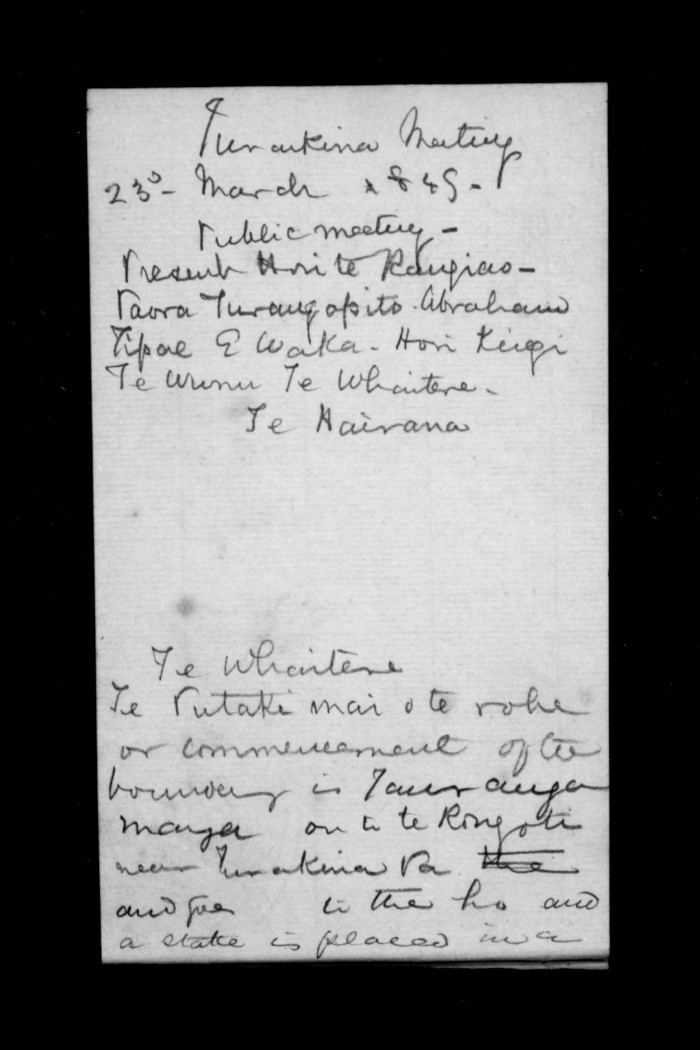 Turakina Meeting
23d - March 1849 -
Public meeting -
Present Hori te Rangiao -
Paora Turangapito. Abraham
Tipae E Waka - Hori Kingi
Te Te Whaitere -
Te Hairana
Te Whaitere
Te Putake mai o te rohe
or commencement of the
boundary is Tauranga
manga on to te Rongoti
near Turakina Pa the
and goes to the ho and
a stake is placed in a